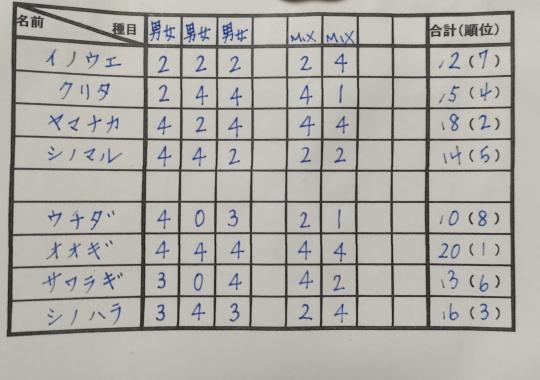 名前 種目 男女 男女 男女 MIX MIX 合計(順位)
イノウエ 2 2 2 2 4 12(7)
クリタ 2 4 4 4 1 15(4)
ヤマナカ 4 2 4 4 4 18(2)
シノマル 4 4 2 2 2 14(5)
ウチダ 4 0 3 2 1 10(8)
オオギ 4 4 4 4 4 20(1)
サワラギ 3 0 4 4 2 13(6)
シノハラ 3 4 3 2 4 16(3)